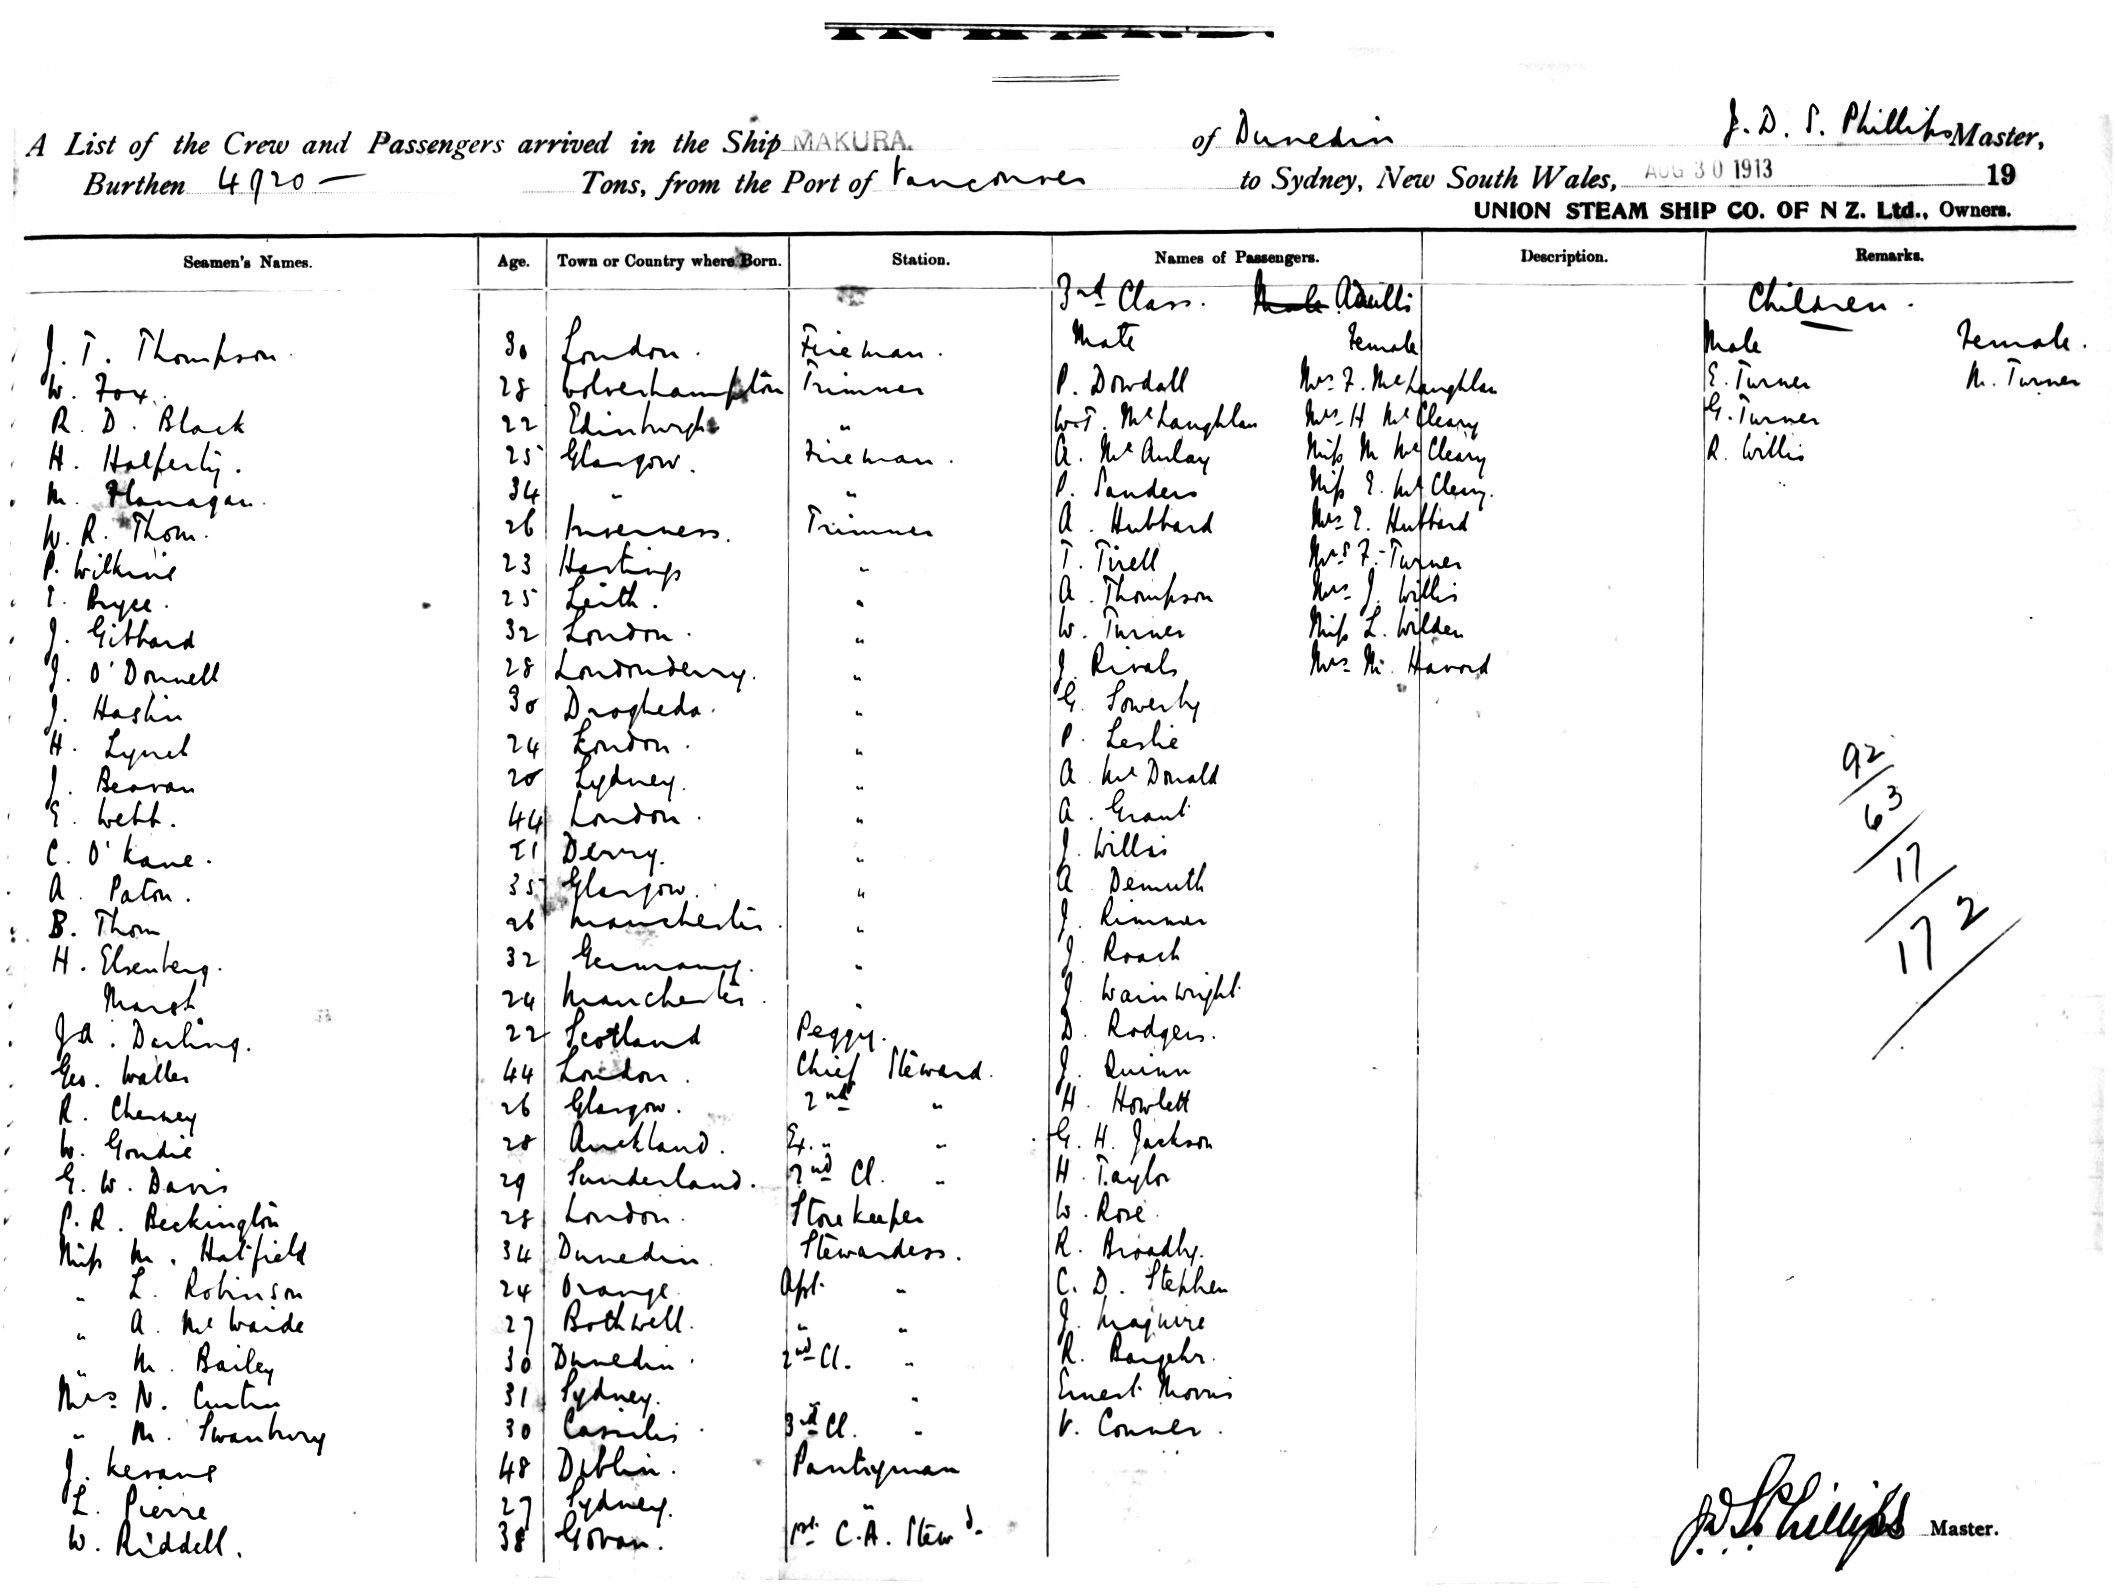 A List of the Crew and Passengers arrived in the Ship MAKURA. of Dunedin J. D. S. Phillips Master,
Burthen 4920 — Tons, from the Port of Vancouver to Sydney, New South Wales, AUG 30 1913 19
UNION STEAM SHIP CO. OF N Z. Ltd., Owners.
Seamen's Names. Age. Town or Country where Born. Station. Names of Passengers. Description. Remarks.
3rd Class. Male Adults Children.
J. T. Thompson 30 London. Fireman. Male Female Male Female.
W. Fox. 28 Wolverhampton Trimmer P. Dowdall Mrs F. McLaughlan E. Turner M. Turner
R. D. Black 22 Edinburgh " W.T. McLaughlan Mrs H McCleary G. Turner
H. Halferty. 25 Glasgow. Fireman. A. McAulay Miss M McCleary R. Willis
M. Flanagan. 34 " " P. Sanders Miss E. McCleary.
W. R. Thom. 26 Inverness. Trimmer A. Hubbard Mrs E. Hubbard
P. Wilkins 23 Hastings " T. Tirell Mrs F. Turner
E. Bryce. 25 Leith. " A. Thompson Mrs J. Willis
J. Gibbard 32 London. " W. Turner Miss L. Wilden
J. O'Donnell 28 Londonderry. " J. Rivals Mrs M. Havord
J. Haslin 30 Drogheda. " G. Sowerby
H. Lynch 24 London. " P. Leslie 92
J. Beavan 20 Sydney. " A McDonald
E. Webb. 44 London. " A. Grant 63
C. O'Kane. 21 Derry. " J. Willis 17
A. Paton. 35 Glasgow. " A Demuth
B. Thom 26 Manchester. " J. Rimmer 172
H. Elsenberg. 32 Germany. " J. Roach
Marsh 24 Manchester. " J. Wainwright
J A. Darling. 22 Scotland Peggy. D. Rodgers.
Geo. Waller 44 London. Chief Steward. J. Quinn
R. Cherney 26 Glasgow. 2nd " H. Howlett
W. Goudie 28 Auckland. Ex. " " G. H. Jackson
G. W. Davis 29 Sunderland. 2nd Cl. " H. Taylor
P. R. Beckington 28 London. Storekeeper W. Rose.
Miss M. Hatfield 34 Dunedin Stewardess. R. Broadby.
" L. Robinson 24 Orange. Asst. " C. D. Stephen
" A. McWaide 27 Bothwell. " " J. Maguire
" M. Bailey 30 Dunedin. 2nd Cl. " R. Bargehr.
Mrs N. Curtin 31 Sydney. " Ernest Morris
" M. Swanbury 30 Cassilis. 3rd Cl. " V. Conner.
J. Kerans 48 Dublin. Pantryman
L. Pierre 27 Sydney. "
W. Riddell. 38 Govan. 1st C.A. Stewd.
J D S Phillips Master.